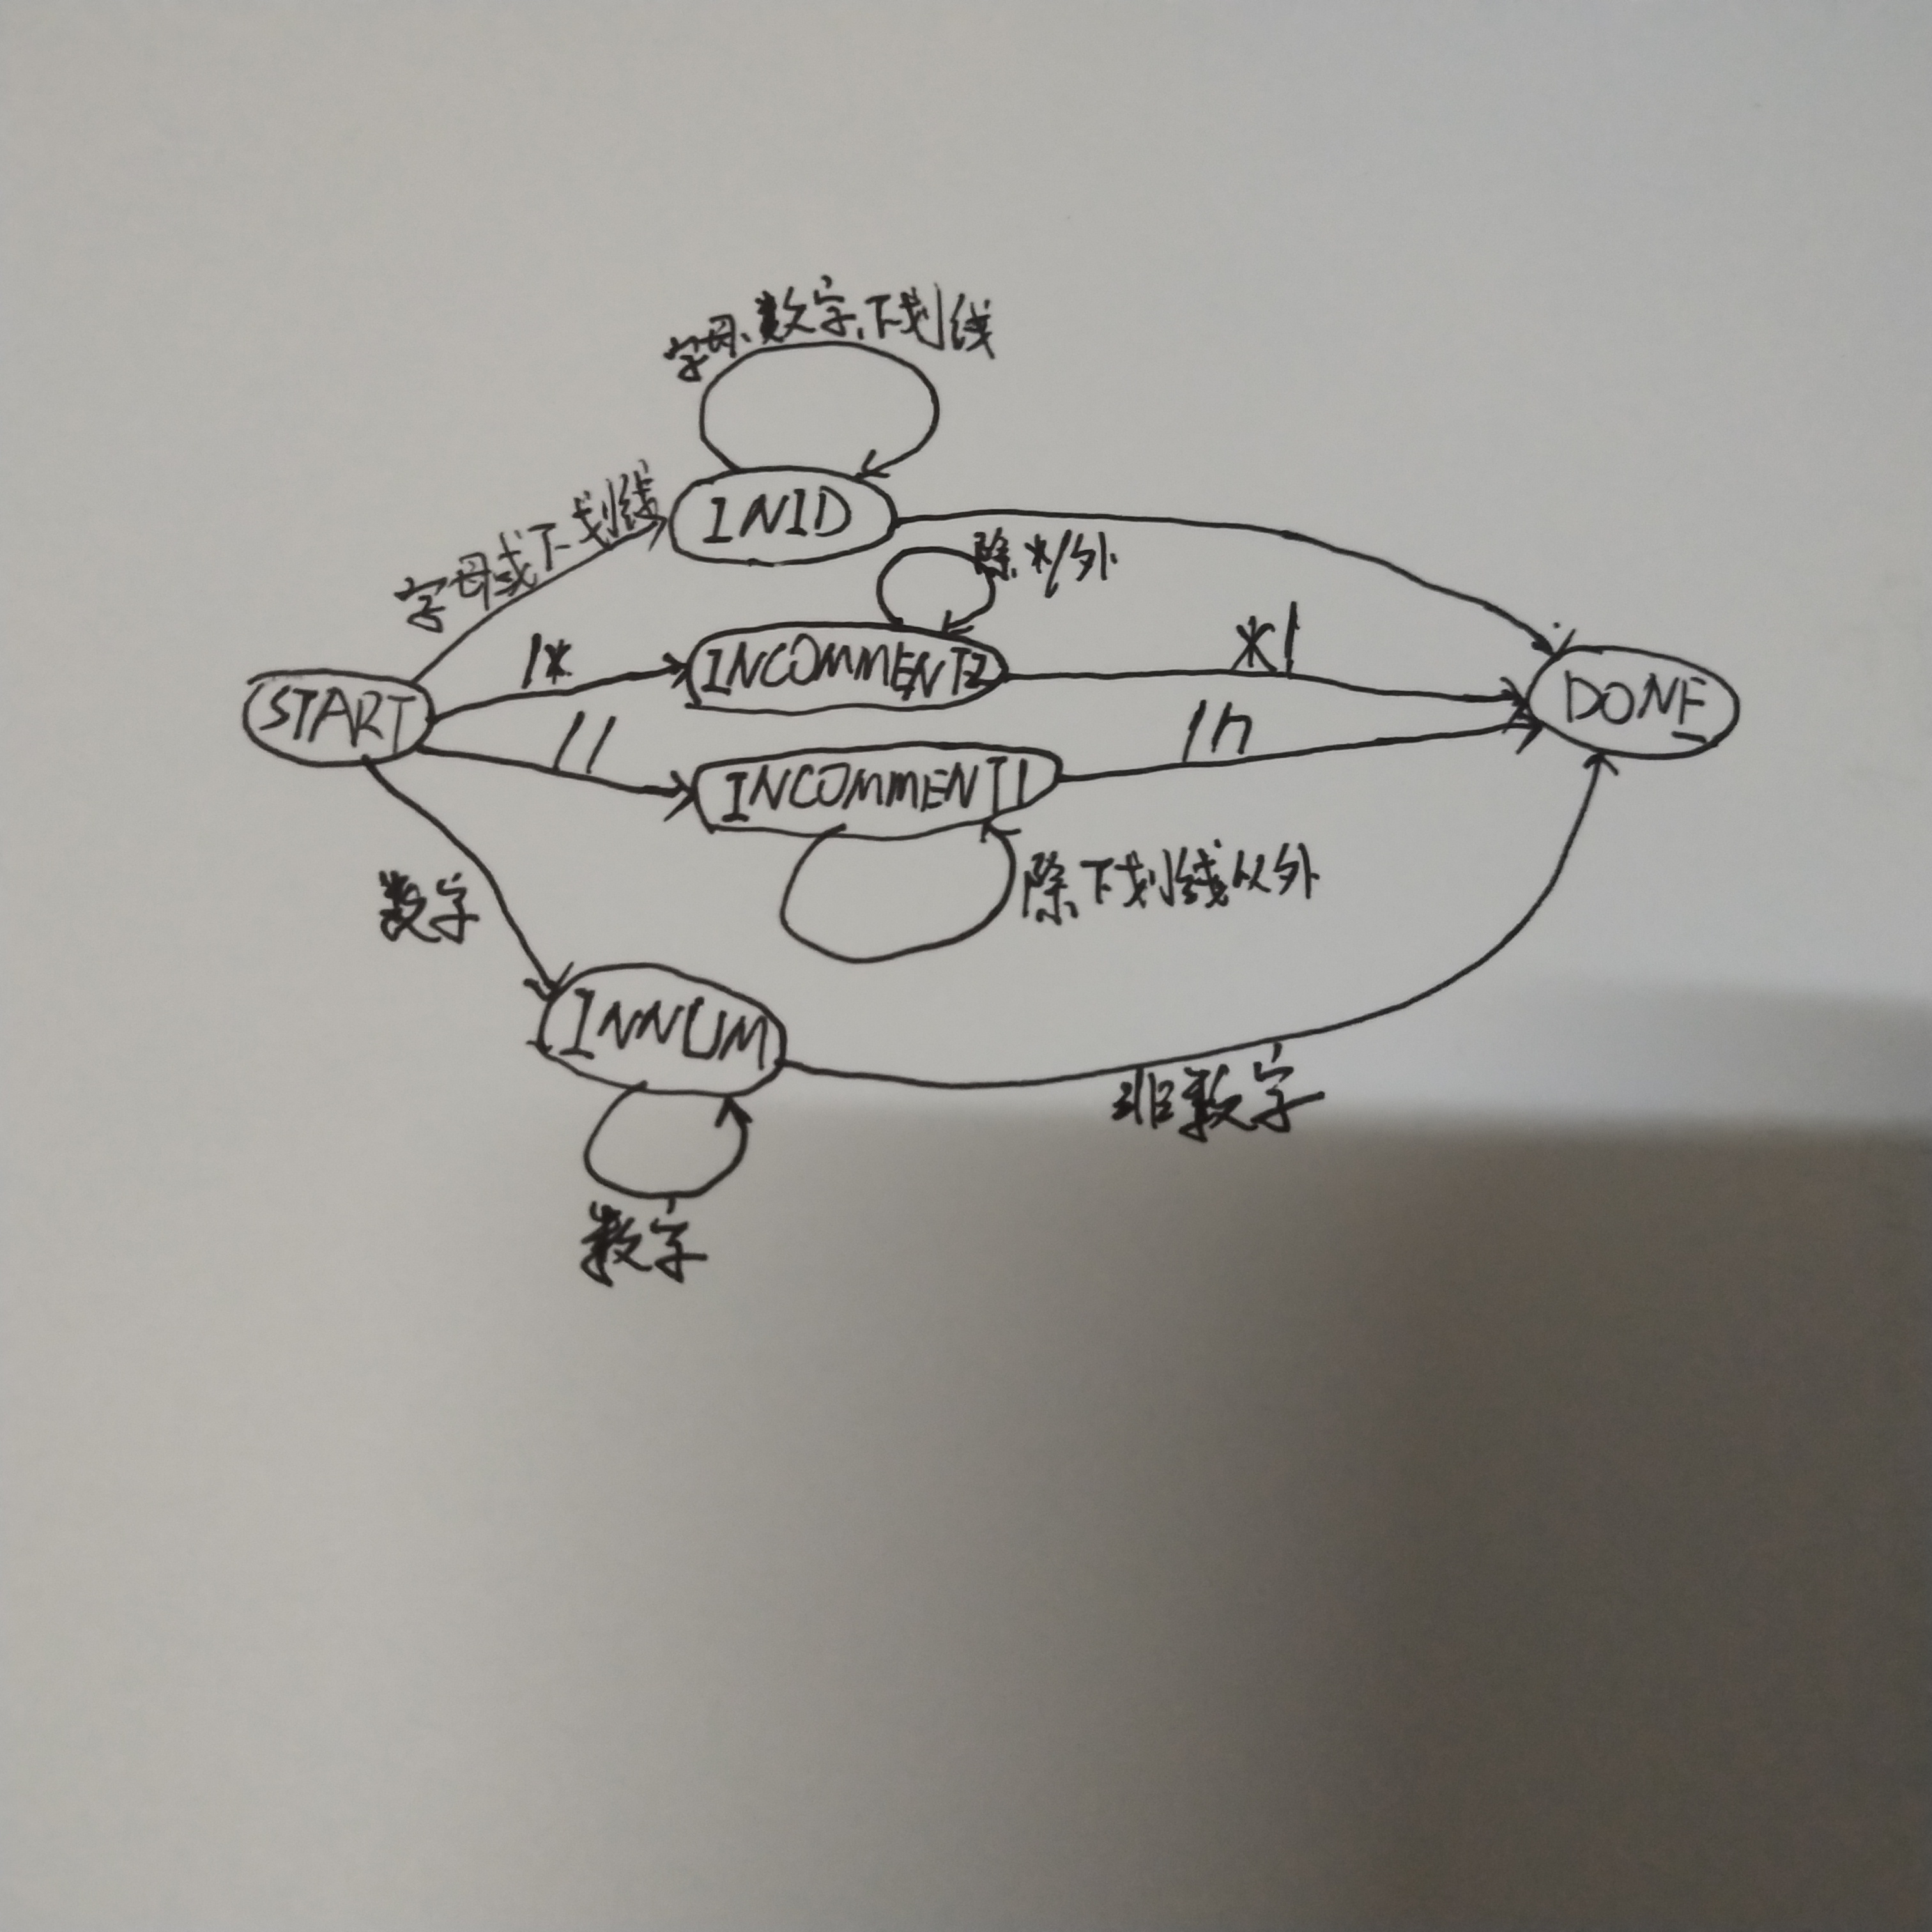 字母、数字、下划线
字母或下划线
INID
除*/外
/*
INCOMMENT2
*/
START
DONE
//
INCOMMENT1
/n
除下划线以外
数字
INNUM
非数字
数字